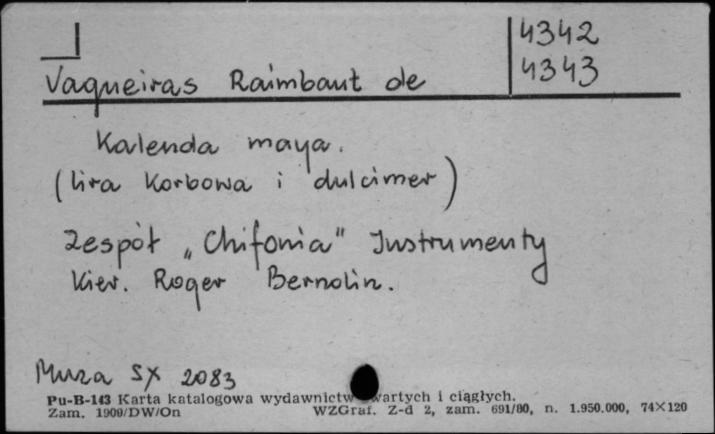 4342
4343
Vaqueiras Raimbaut de
Kalenda maya.
(lira korbowa i dulcimer)
Zespół „Chifonia" Instrumenty
Kier. Roger Bernolin.
Muza SX 2083
Pu-B-143 Karta katalogowa wydawnictw zwartych i ciągłych.
Zam. 1909/DW/On WZGraf. Z-d 2, zam. 691/80, n. 1.950.000, 74×120